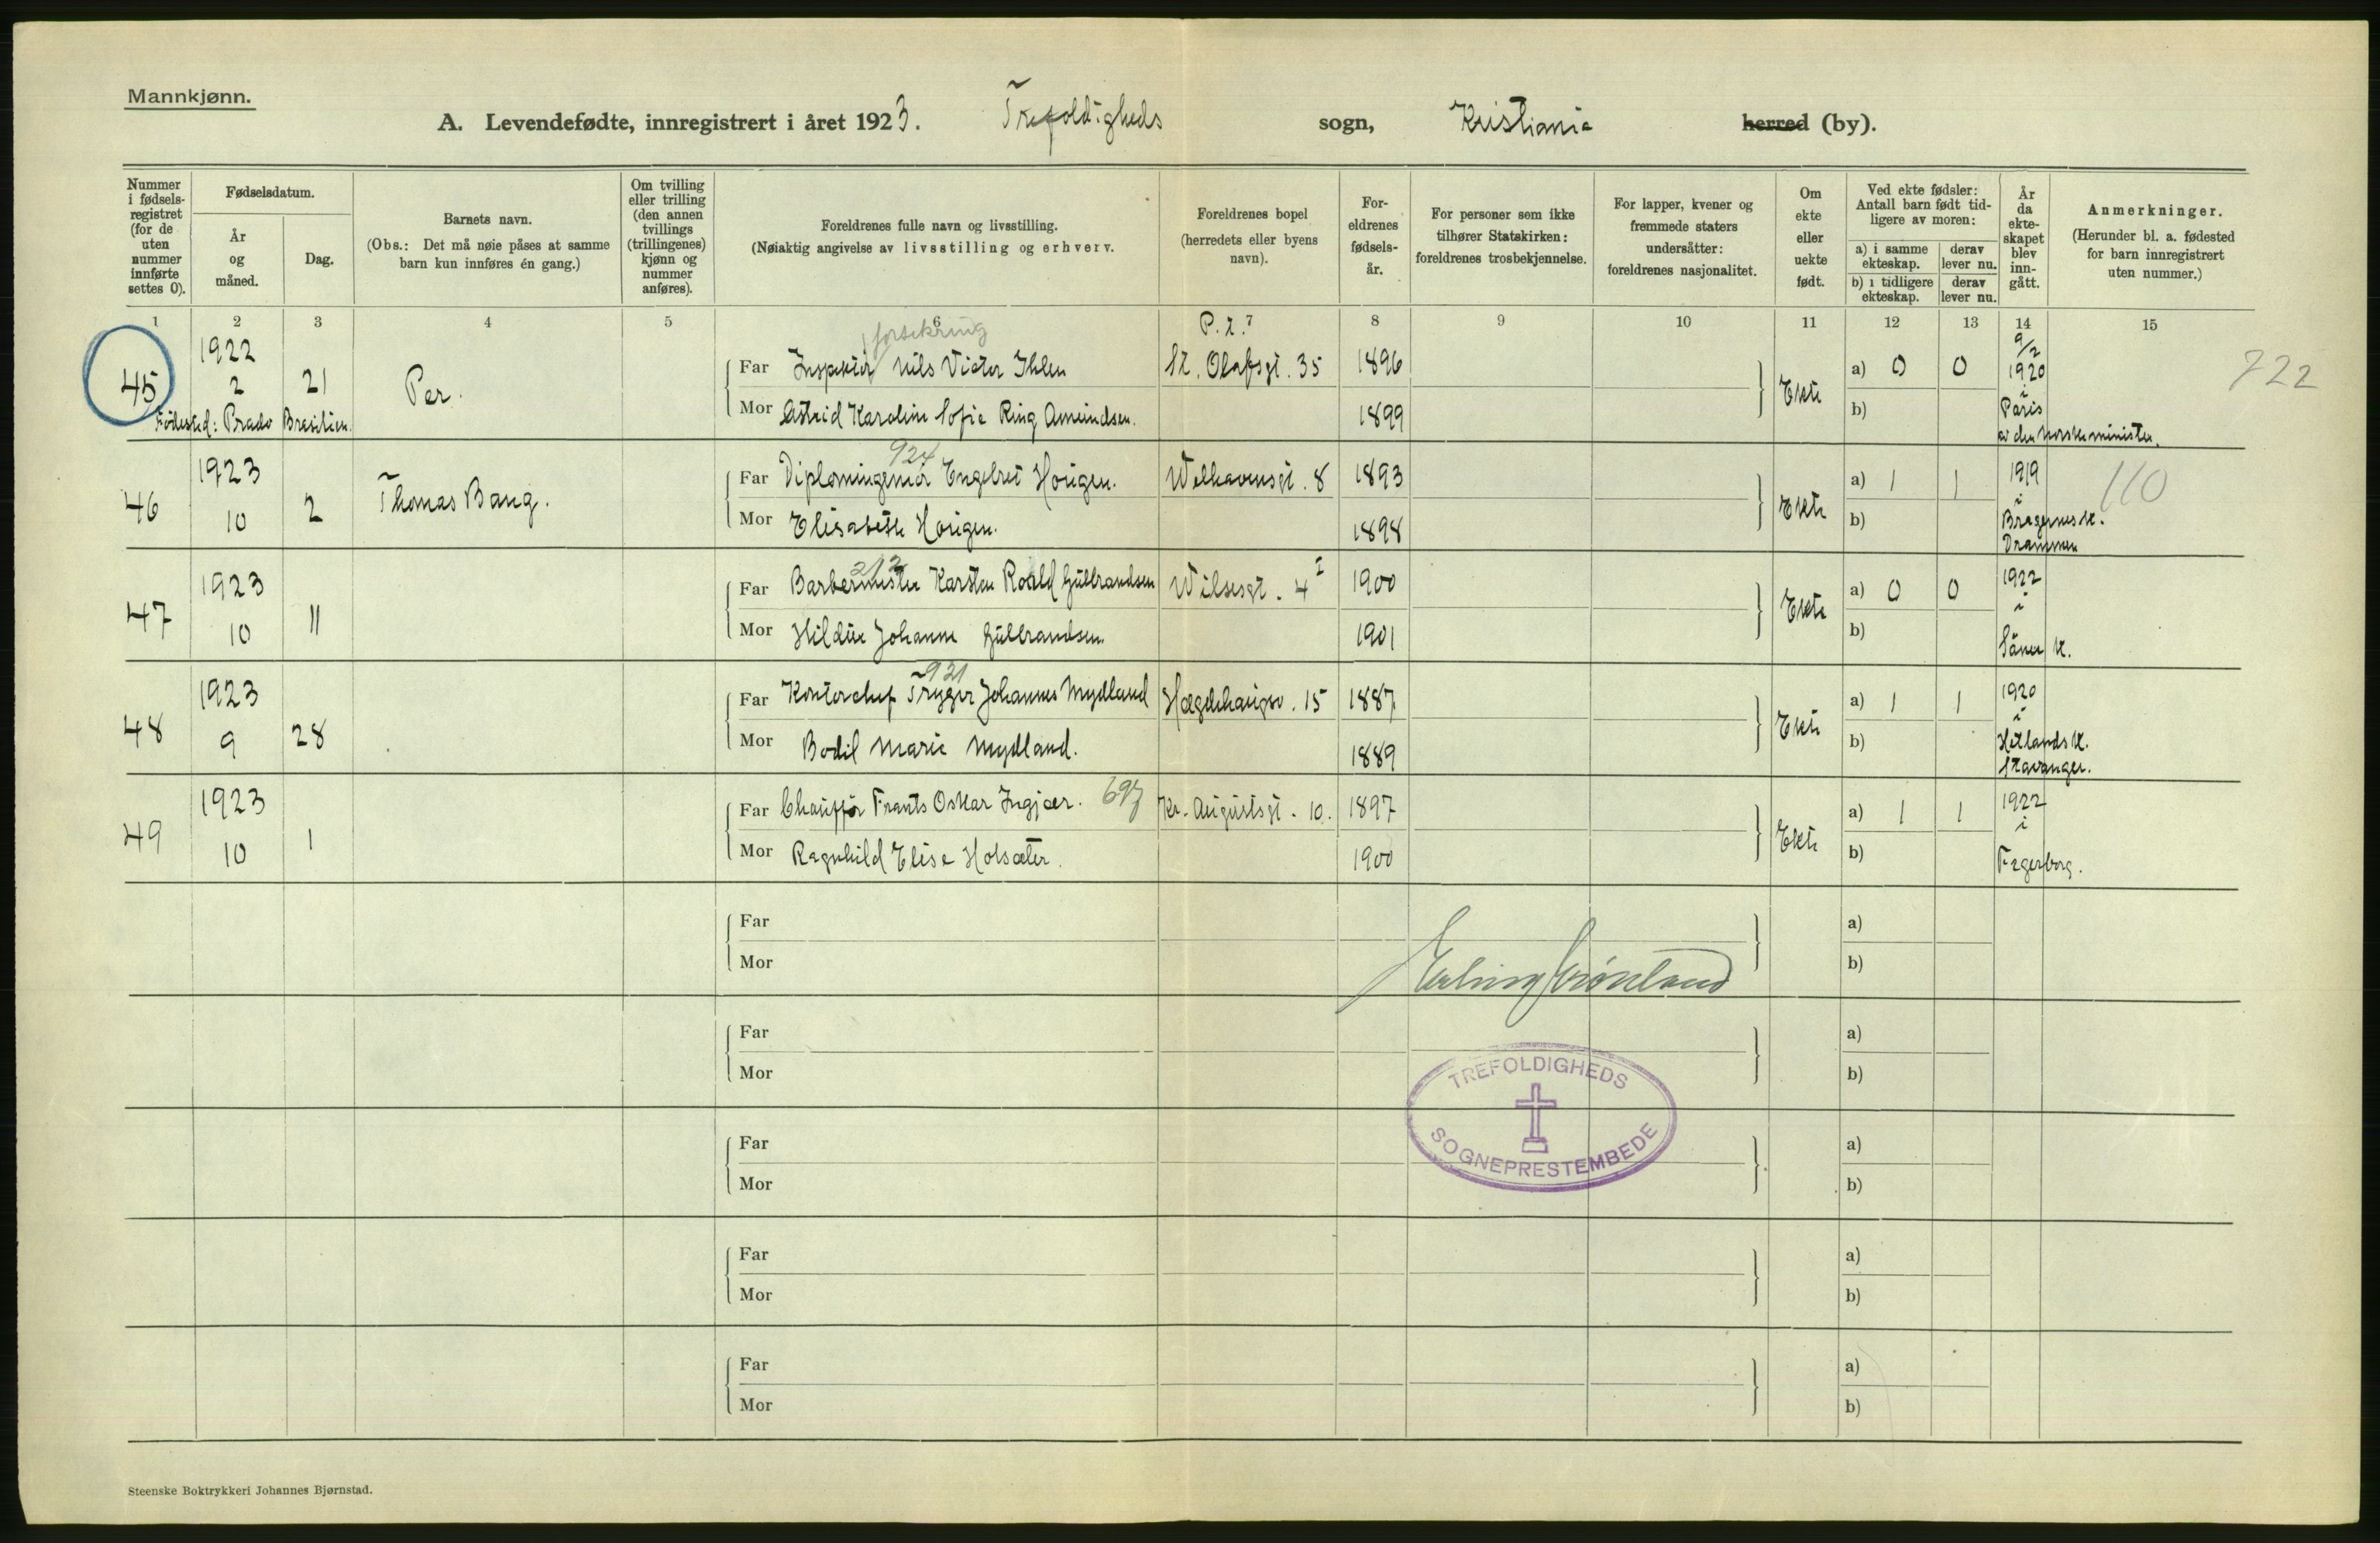 Mannkjønn.
A. Levendefødte, innregistrert i året 1923. Trefoldigheds sogn, Kristiania herred (by).
Nummer i fødsels-registret (for de uten nummer innførte settes 0).
Fødselsdatum.
År og måned.
Dag.
Barnets navn.
(Obs.: Det må nøie påses at samme barn kun innføres én gang.)
Om tvilling eller trilling (den annen tvillings (trillingenes) kjønn og nummer anføres).
Foreldrenes fulle navn og livsstilling.
(Nøiaktig angivelse av livsstilling og erhverv.
Foreldrenes bopel (herredets eller byens navn).
For-eldrenes fødsels-år.
For personer som ikke tilhører Statskirken: foreldrenes trosbekjennelse.
For lapper, kvener og fremmede staters undersåtter: foreldrenes nasjonalitet.
Om ekte eller uekte født.
Ved ekte fødsler: Antall barn født tid-ligere av moren:
a) i samme ekteskap.
derav lever nu.
b) i tidligere ekteskap.
derav lever nu.
År da ekte-skapet blev inn-gått.
Anmerkninger.
(Herunder bl. a. fødested for barn innregistrert uten nummer.)
1 2 3 4 5 6 7 8 9 10 11 12 13 14 15
45 1922 2 21 Per.
Fødested: Prado Brasilien.
forsikring
Far Inspektør Nils Victor Ihlen P. t. St. Olafsgt. 35 1896
Mor Astrid Karoline Sofie Ring Amundsen. 1899
Ekte a) 0 0 b) 9/2 1920 i Paris av den norske minister. 722
46 1923 10 2 Thomas Bang.
924
Far Diplomingeniør Engebret Hougen. Welhavensgt. 8 1893
Mor Elisabeth Hougen. 1898
Ekte a) 1 1 b) 1919 i Bragernes k. Drammen 110
47 1923 10 11
212
Far Barbermester Karsten Roald Gulbrandsen Wilsesgt. 4 I 1900
Mor Hildur Johanne Gulbrandsen. 1901
Ekte a) 0 0 b) 1922 i Såner k.
48 1923 9 28
921
Far Kontorchef Trygve Johannes Mydland Hægdehaugsv. 15 1887
Mor Bodil Marie Mydland. 1889
Ekte a) 1 1 b) 1920 i Hetlands k. Stavanger.
49 1923 10 1
Far Chauffør Frants Oskar Ingjær. 697 Kr. Augustsgt. 10. 1897
Mor Ragnhild Elise Holsæter. 1900
Ekte a) 1 1 b) 1922 i Fagerborg.
Far a)
Mor b)
Erling Grønland
Far a)
Mor b)
TREFOLDIGHEDS
SOGNEPRESTEMBEDE
Far a)
Mor b)
Far a)
Mor b)
Far a)
Mor b)
Steenske Boktrykkeri Johannes Bjørnstad.